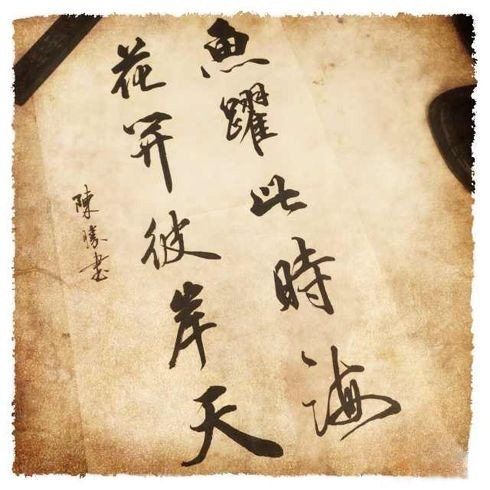 魚躍此時海
花开彼岸天
陳勝书